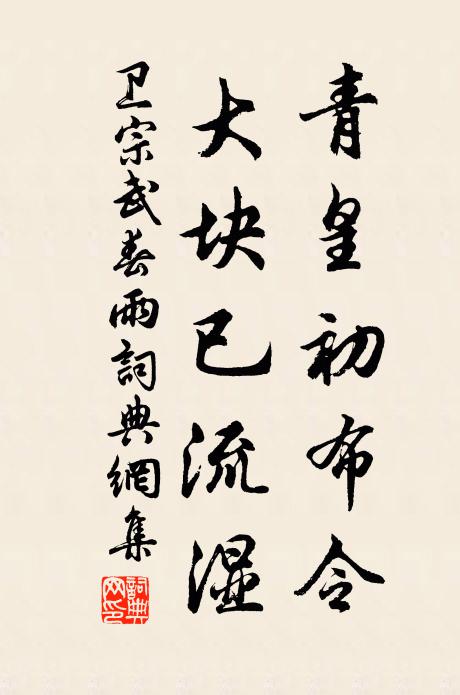 青皇初布令
大块已流湿
卫宗武春雨詞典網集
詞典网印